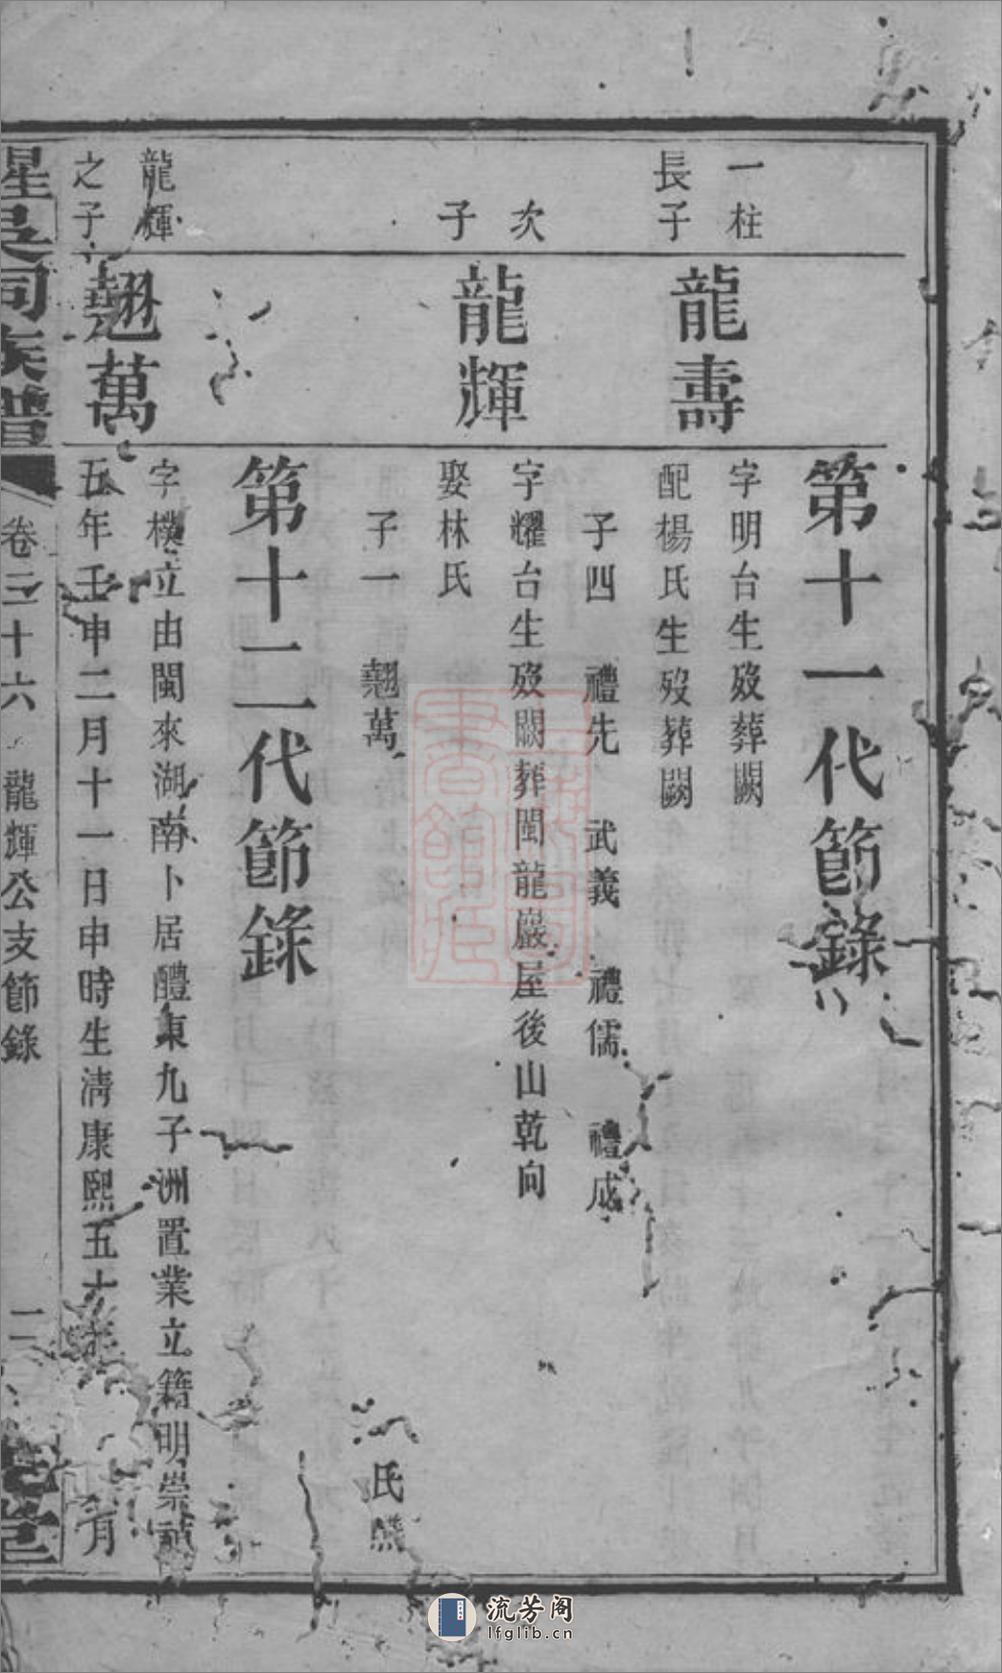 第十一代節錄
一柱
長子
龍壽
字明台生歿葬闕
配楊氏生歿葬闕
子四 禮先 武義 禮儒 禮成
次
子
龍輝
字耀台生歿闕葬閩龍巖屋後山乾向
娶林氏
子一 翹萬
氏
第十二代節錄
龍輝
之子
翹萬
字樸立由閩來湖南卜居醴東九子洲置業立籍明崇禎
五年壬申二月十一日申時生清康熙五十 月
星吳同族譜
卷二十六 龍輝公支節錄
堂
上海圖書館藏
流芳阁
lfglib.cn